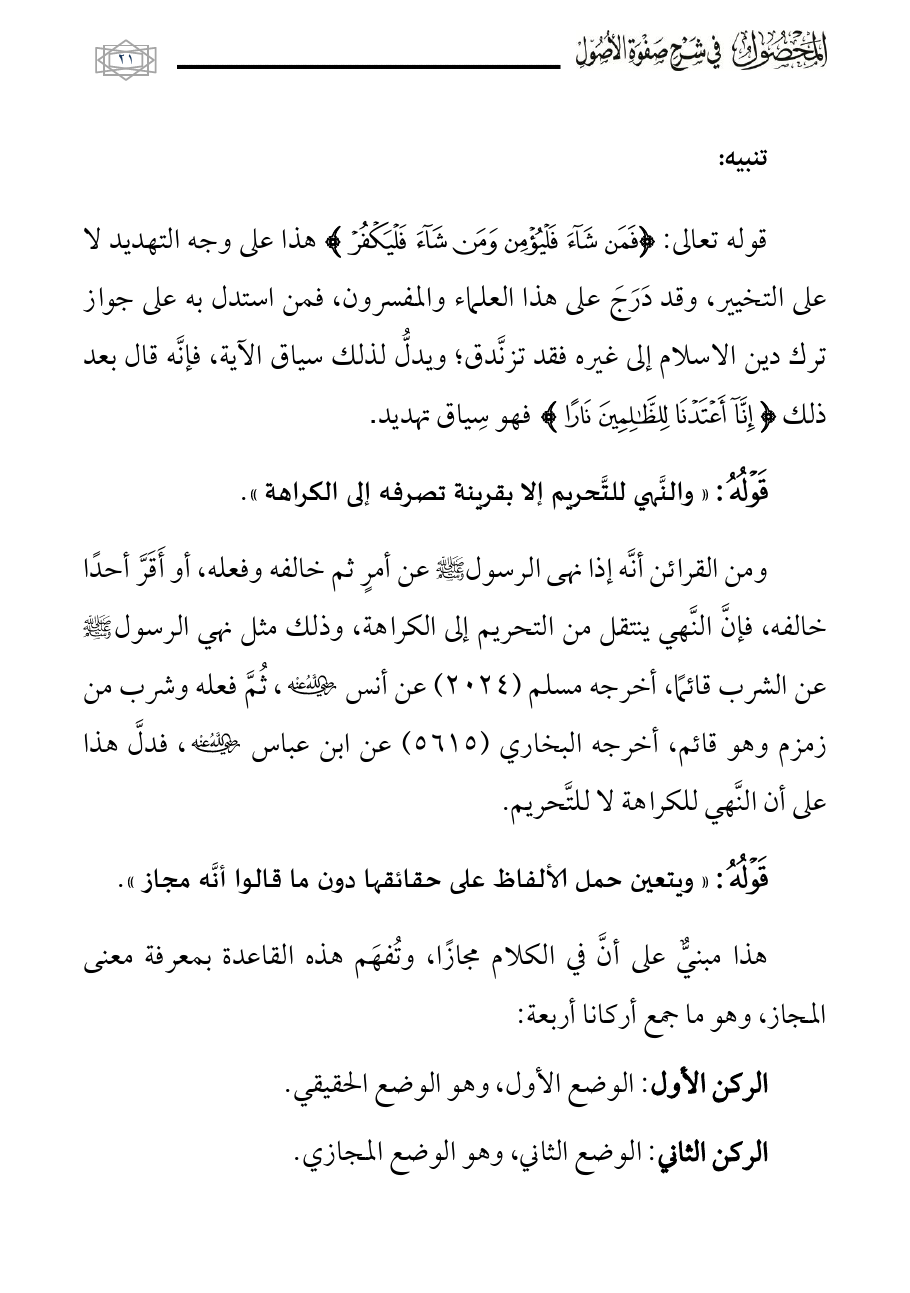 المحصول في شرح صفوة الأصول
٢١
تنبيه:
قوله تعالى: ﴿فَمَن شَآءَ فَلْيُؤْمِن وَمَن شَآءَ فَلْيَكْفُرْ ﴾ هذا على وجه التهديد لا
على التخيير، وقد دَرَجَ على هذا العلماء والمفسرون، فمن استدل به على جواز
ترك دين الاسلام إلى غيره فقد تزنَّدق؛ ويدلُّ لذلك سياق الآية، فإنَّه قال بعد
ذلك ﴿ إِنَّآ أَعْتَدْنَا لِلظَّٰلِمِينَ نَارًا ﴾ فهو سِياق تهديد.
قَوْلُهُ: « والنَّهي للتَّحريم إلا بقرينة تصرفه إلى الكراهة ».
ومن القرائن أنَّه إذا نهى الرسول ﷺ عن أمرٍ ثم خالفه وفعله، أو أَقَرَّ أحدًا
خالفه، فإنَّ النَّهي ينتقل من التحريم إلى الكراهة، وذلك مثل نهي الرسول ﷺ
عن الشرب قائمًا، أخرجه مسلم (٢٠٢٤) عن أنس رضي الله عنه، ثُمَّ فعله وشرب من
زمزم وهو قائم، أخرجه البخاري (٥٦١٥) عن ابن عباس رضي الله عنه، فدلَّ هذا
على أن النَّهي للكراهة لا للتَّحريم.
قَوْلُهُ: « ويتعين حمل الألفاظ على حقائقها دون ما قالوا أنَّه مجاز ».
هذا مبنيٌّ على أنَّ في الكلام مجازًا، وتُفهَم هذه القاعدة بمعرفة معنى
المجاز، وهو ما جمع أركانا أربعة:
الركن الأول: الوضع الأول، وهو الوضع الحقيقي.
الركن الثاني: الوضع الثاني، وهو الوضع المجازي.